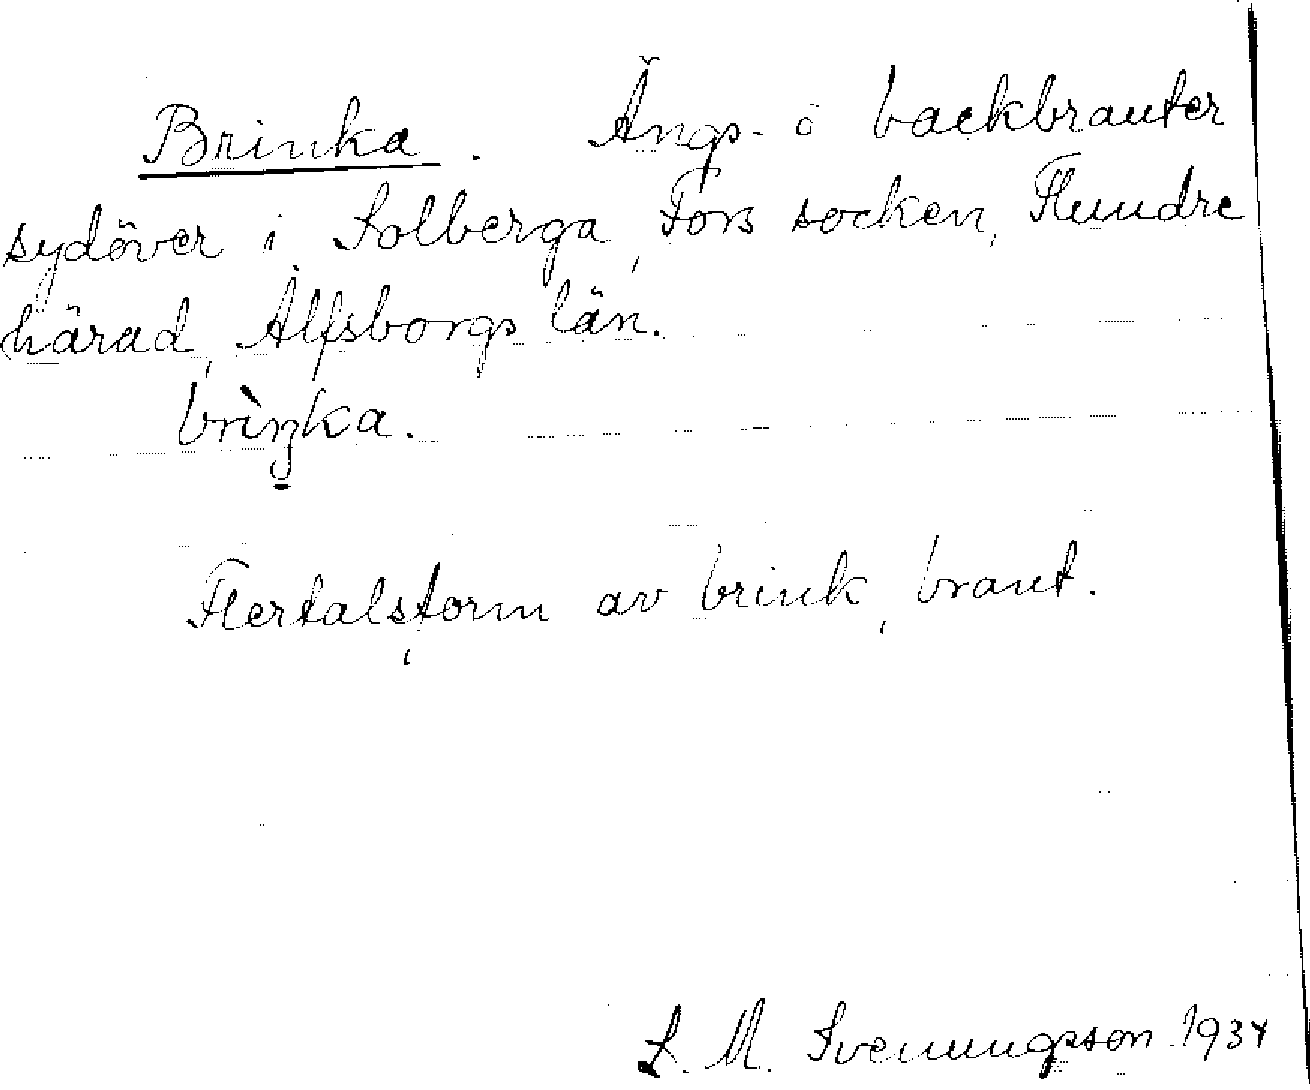 Brinka. Ängs- o backbranter
sydöver i Solberga, Fors socken, Flundre
härad, Älfsborgs län.
brìŋka.
Flertalsform av brink, brant.
S. M. Svenungsson 1934